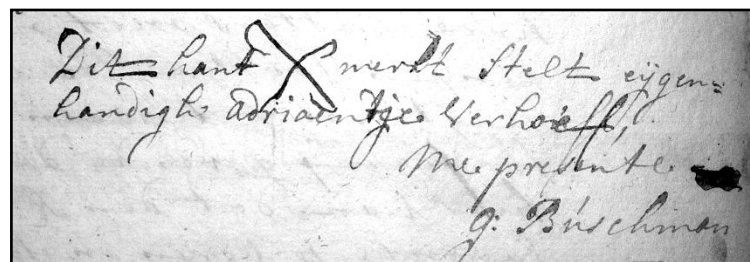 Dit hant X merkt stelt eijgen=
handigh adriaentje Verhoeff,
Me presente
G: Búschman